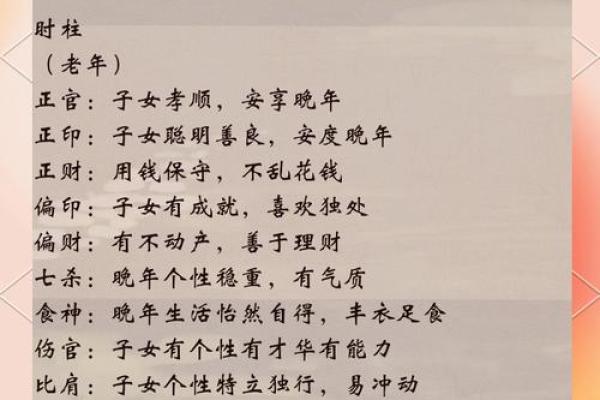 时柱
（老年）
正官：子女孝顺，安享晚年
正印：子女聪明善良，安度晚年
正财：用钱保守，不乱花钱
偏印：子女有成就，喜欢独处
偏财：有不动产，善于理财
七杀：晚年个性稳重，有气质
食神：晚年生活怡然自得，丰衣足食
伤官：子女有个性有才华有能力
比肩：子女个性特立独行，易冲动